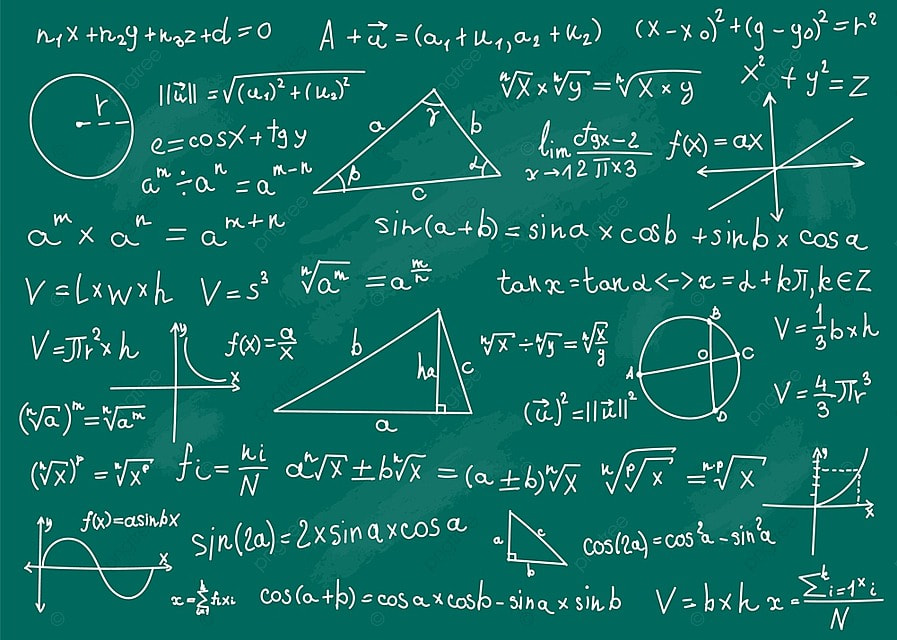 n₁x+n₂y+n₃z+d=0
A+u⃗=(a₁+u₁,a₂+u₂)
(x-x₀)²+(y-y₀)²=r²
r
||u⃗||=√(u₁)²+(u₂)²
a
γ
b
ⁿ√x×ⁿ√y=ⁿ√x×y
x²+y²=z
e=cosx+tgy
β
α
c
lim x→1 ctgx-2/2π×3
f(x)=ax
aᵐ÷aⁿ=aᵐ⁻ⁿ
aᵐ×aⁿ=aᵐ⁺ⁿ
sin(a+b)=sina×cosb+sinb×cosa
V=L×w×h
V=s³
ⁿ√aᵐ=a^m/n
tanx=tanα<->x=α+kπ,k∈Z
V=πr²×h
y
x
f(x)=a/x
b
ha
c
a
ⁿ√x÷ⁿ√y=ⁿ√x/y
B
O
C
A
D
V=1/3b×h
(ⁿ√a)ᵐ=ⁿ√aᵐ
(u⃗)²=||u⃗||²
V=4/3πr³
(ⁿ√x)ᵖ=ⁿ√xᵖ
fi=ni/N
aⁿ√x±bⁿ√x=(a±b)ⁿ√x
ⁿ√ᵖ√x=ⁿ·ᵖ√x
y
x
y
f(x)=asinbx
x
sin(2a)=2×sina×cosa
a
c
b
cos(2a)=cos²a-sin²a
x=∑fixi
cos(a+b)=cosa×cosb-sina×sinb
V=b×h
x=∑ᵏi=1ˣi/N